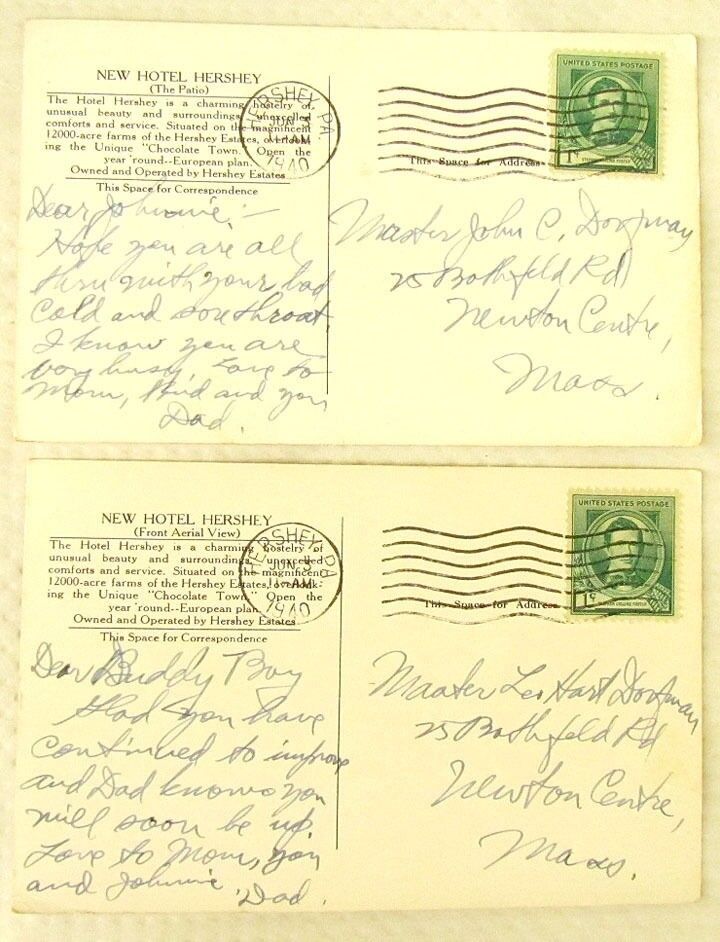 NEW HOTEL HERSHEY
(The Patio)
The Hotel Hershey is a charming hostelry of
unusual beauty and surroundings, unexcelled
comforts and service. Situated on the magnificent
12000-acre farms of the Hershey Estates, overlook-
ing the Unique "Chocolate Town." Open the
year 'round--European plan.
Owned and Operated by Hershey Estates
This Space for Correspondence
HERSHEY, PA.
JUN
11-AM
1940
UNITED STATES POSTAGE
1¢
STEPHEN COLLINS FOSTER
This Space for Address
Dear Johnnie:-
Hope you are all
thru with your bad
cold and sore throat
I know you are
very busy. Love to
Mom, Bud and you
Dad.
Master John C. Dorfman
25 Bothfeld Rd
Newton Centre,
Mass.
NEW HOTEL HERSHEY
(Front Aerial View)
The Hotel Hershey is a charming hostelry of
unusual beauty and surroundings, unexcelled
comforts and service. Situated on the magnificent
12000-acre farms of the Hershey Estates, overlook-
ing the Unique "Chocolate Town." Open the
year 'round--European plan.
Owned and Operated by Hershey Estates
This Space for Correspondence
HERSHEY, PA.
JUN
11-AM
1940
UNITED STATES POSTAGE
1¢
STEPHEN COLLINS FOSTER
This Space for Address
Dear Buddy Boy
Glad you have
continued to improve
and Dad knows you
will soon be up.
Love to Mom, you
and Johnnie. Dad.
Master Leo Hart Dorfman
25 Bothfeld Rd
Newton Centre,
Mass.